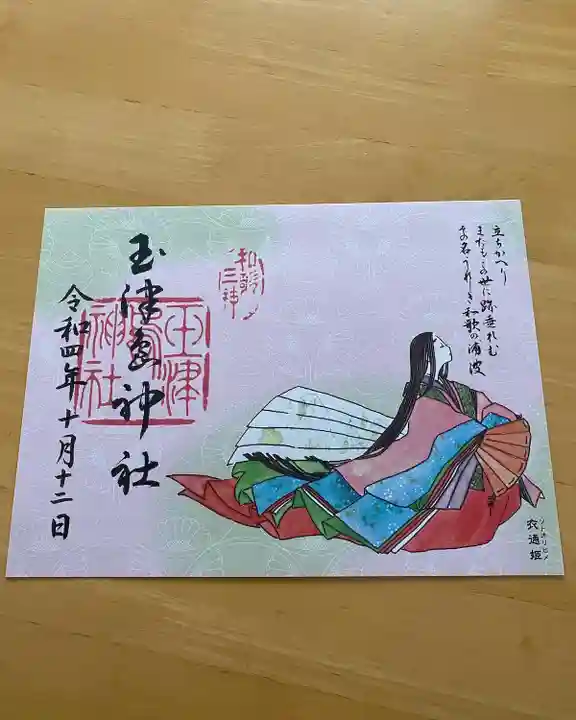 立ちかへり
またもこの世に跡垂れむ
その名うれしき和歌の浦波
ソトオリヒメ
衣通姫
和歌
三神
玉津島神社
玉津
嶋
神社
令和四年十月十二日